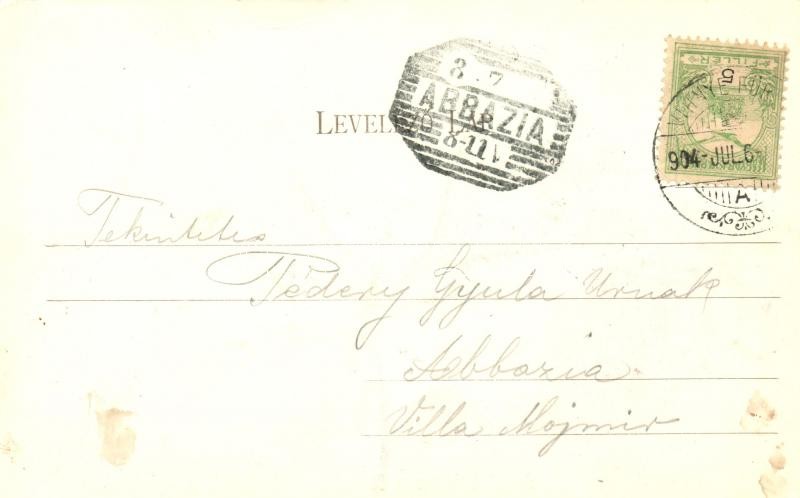 FILLÉR
5
904-JUL.6-
A
8.7
ABBAZIA
LEVELEZŐ LAP
Tekintetes
Gyula Urnak
Abbazia
Villa Mojmir